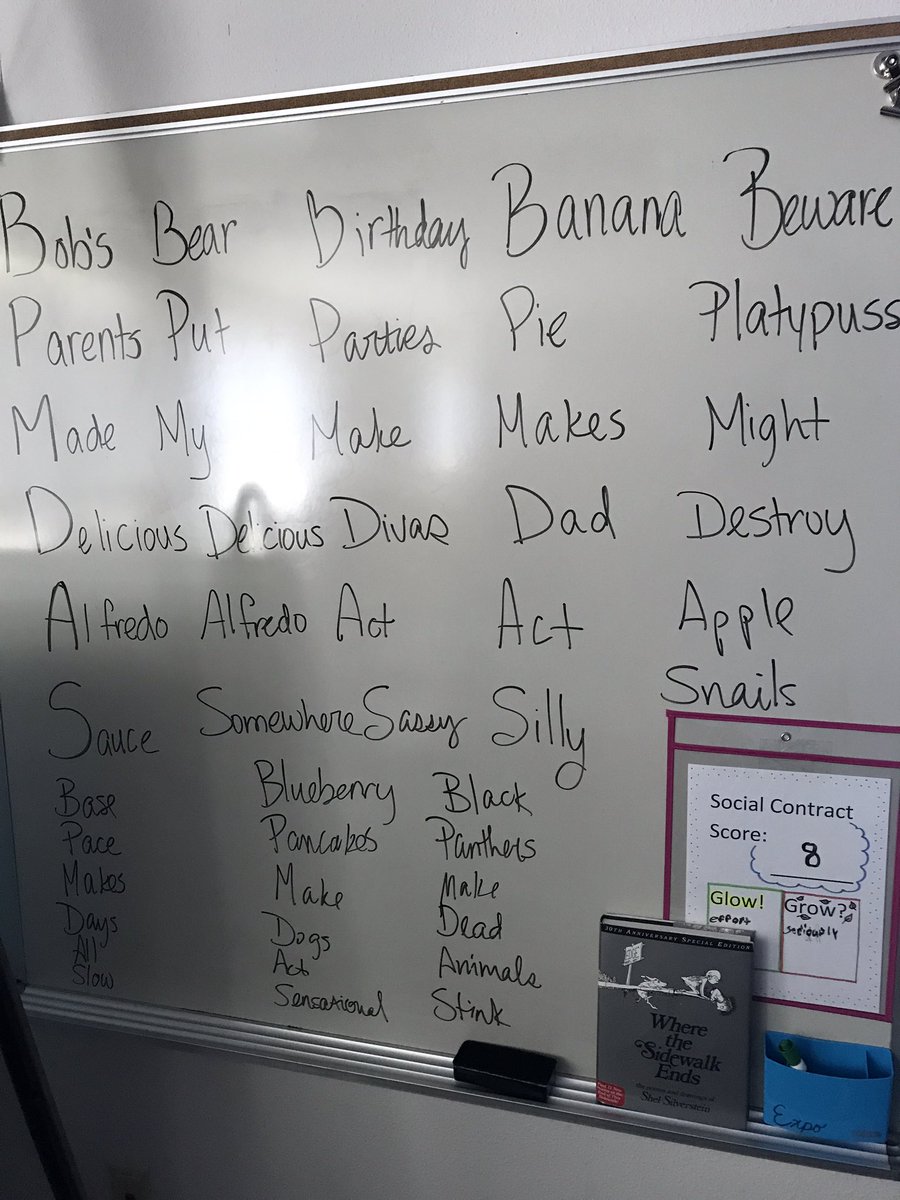 Bob's Bear Birthday Banana Beware
Parents Put Parties Pie Platypuss
Made My Make Makes Might
Delicious Delicious Divas Dad Destroy
Alfredo Alfredo Act Act Apple
Sauce Somewhere Sassy Silly Snails
Base Blueberry Black
Pace Pancakes Panthers
Makes Make Make
Days Dogs Dead
All Act Animals
Slow Sensational Stink
Social Contract
Score: 8
Glow! Grow?
effort seriously
30TH ANNIVERSARY SPECIAL EDITION
Where
the
Sidewalk
Ends
the poems and drawings of
Shel Silverstein
Expo